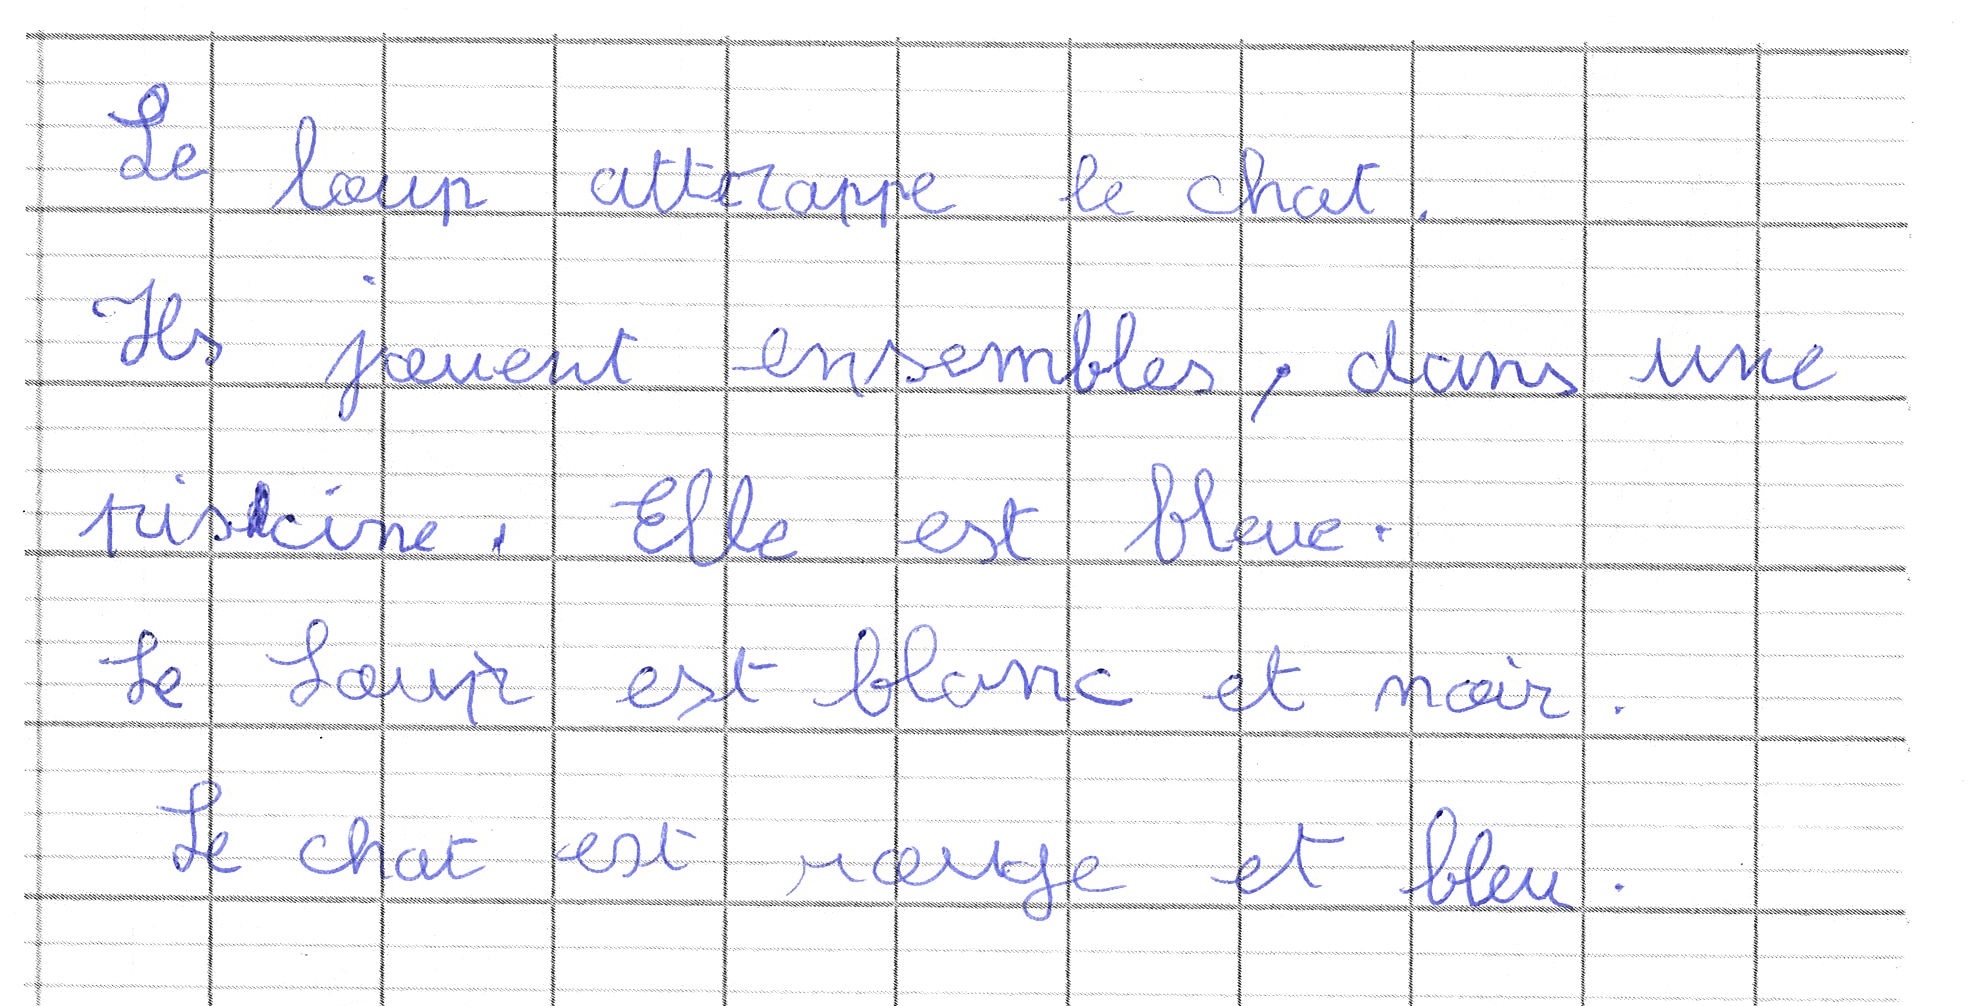 Le loup attrappe le chat.
Ils jouent ensembles, dans une
piscine. Elle est bleue.
Le Loup est blanc et noir.
Le chat est rouge et bleu.